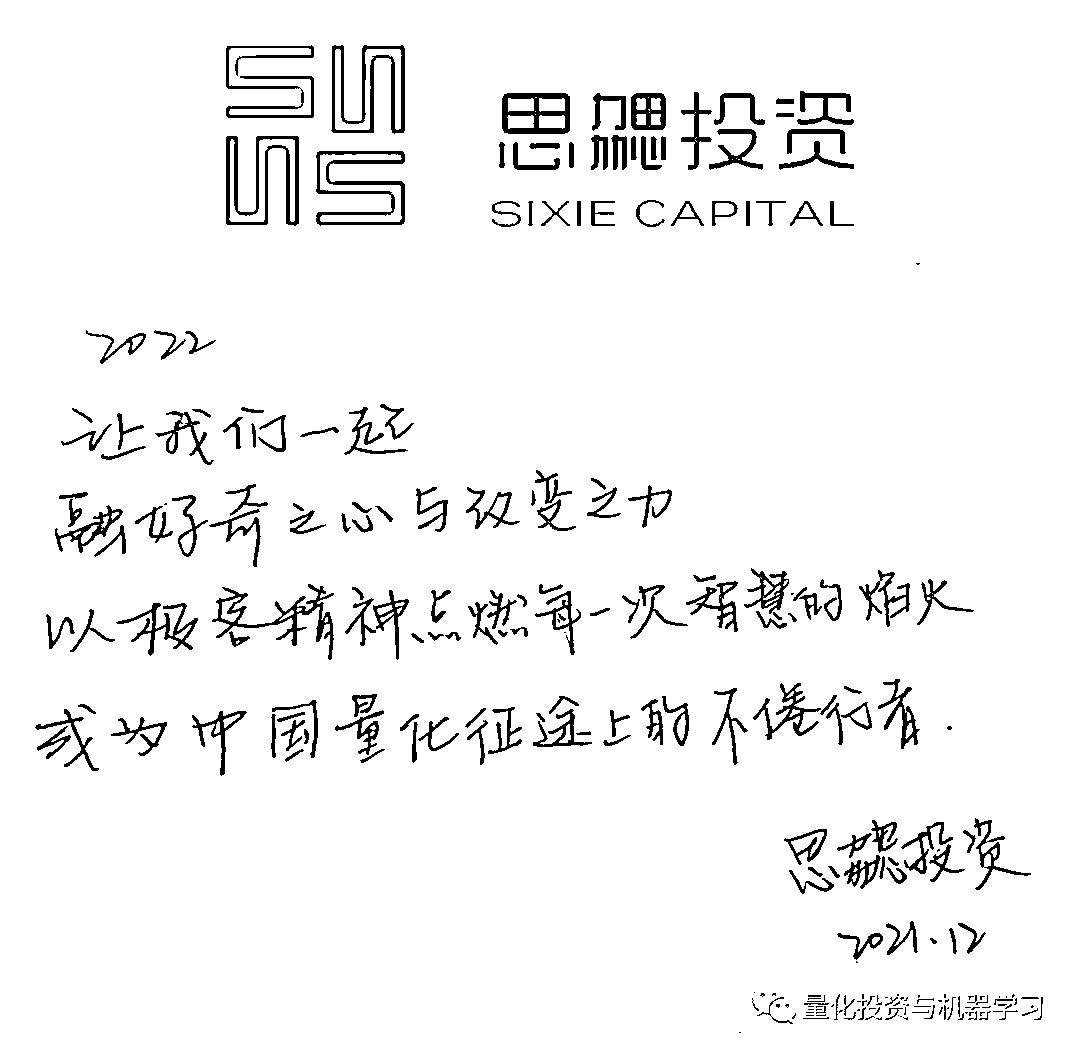 思勰投资
SIXIE CAPITAL
2022
让我们一起
融好奇之心与改变之力
以极客精神点燃每一次智慧的焰火
成为中国量化征途上的不倦行者.
思勰投资
2021.12
量化投资与机器学习